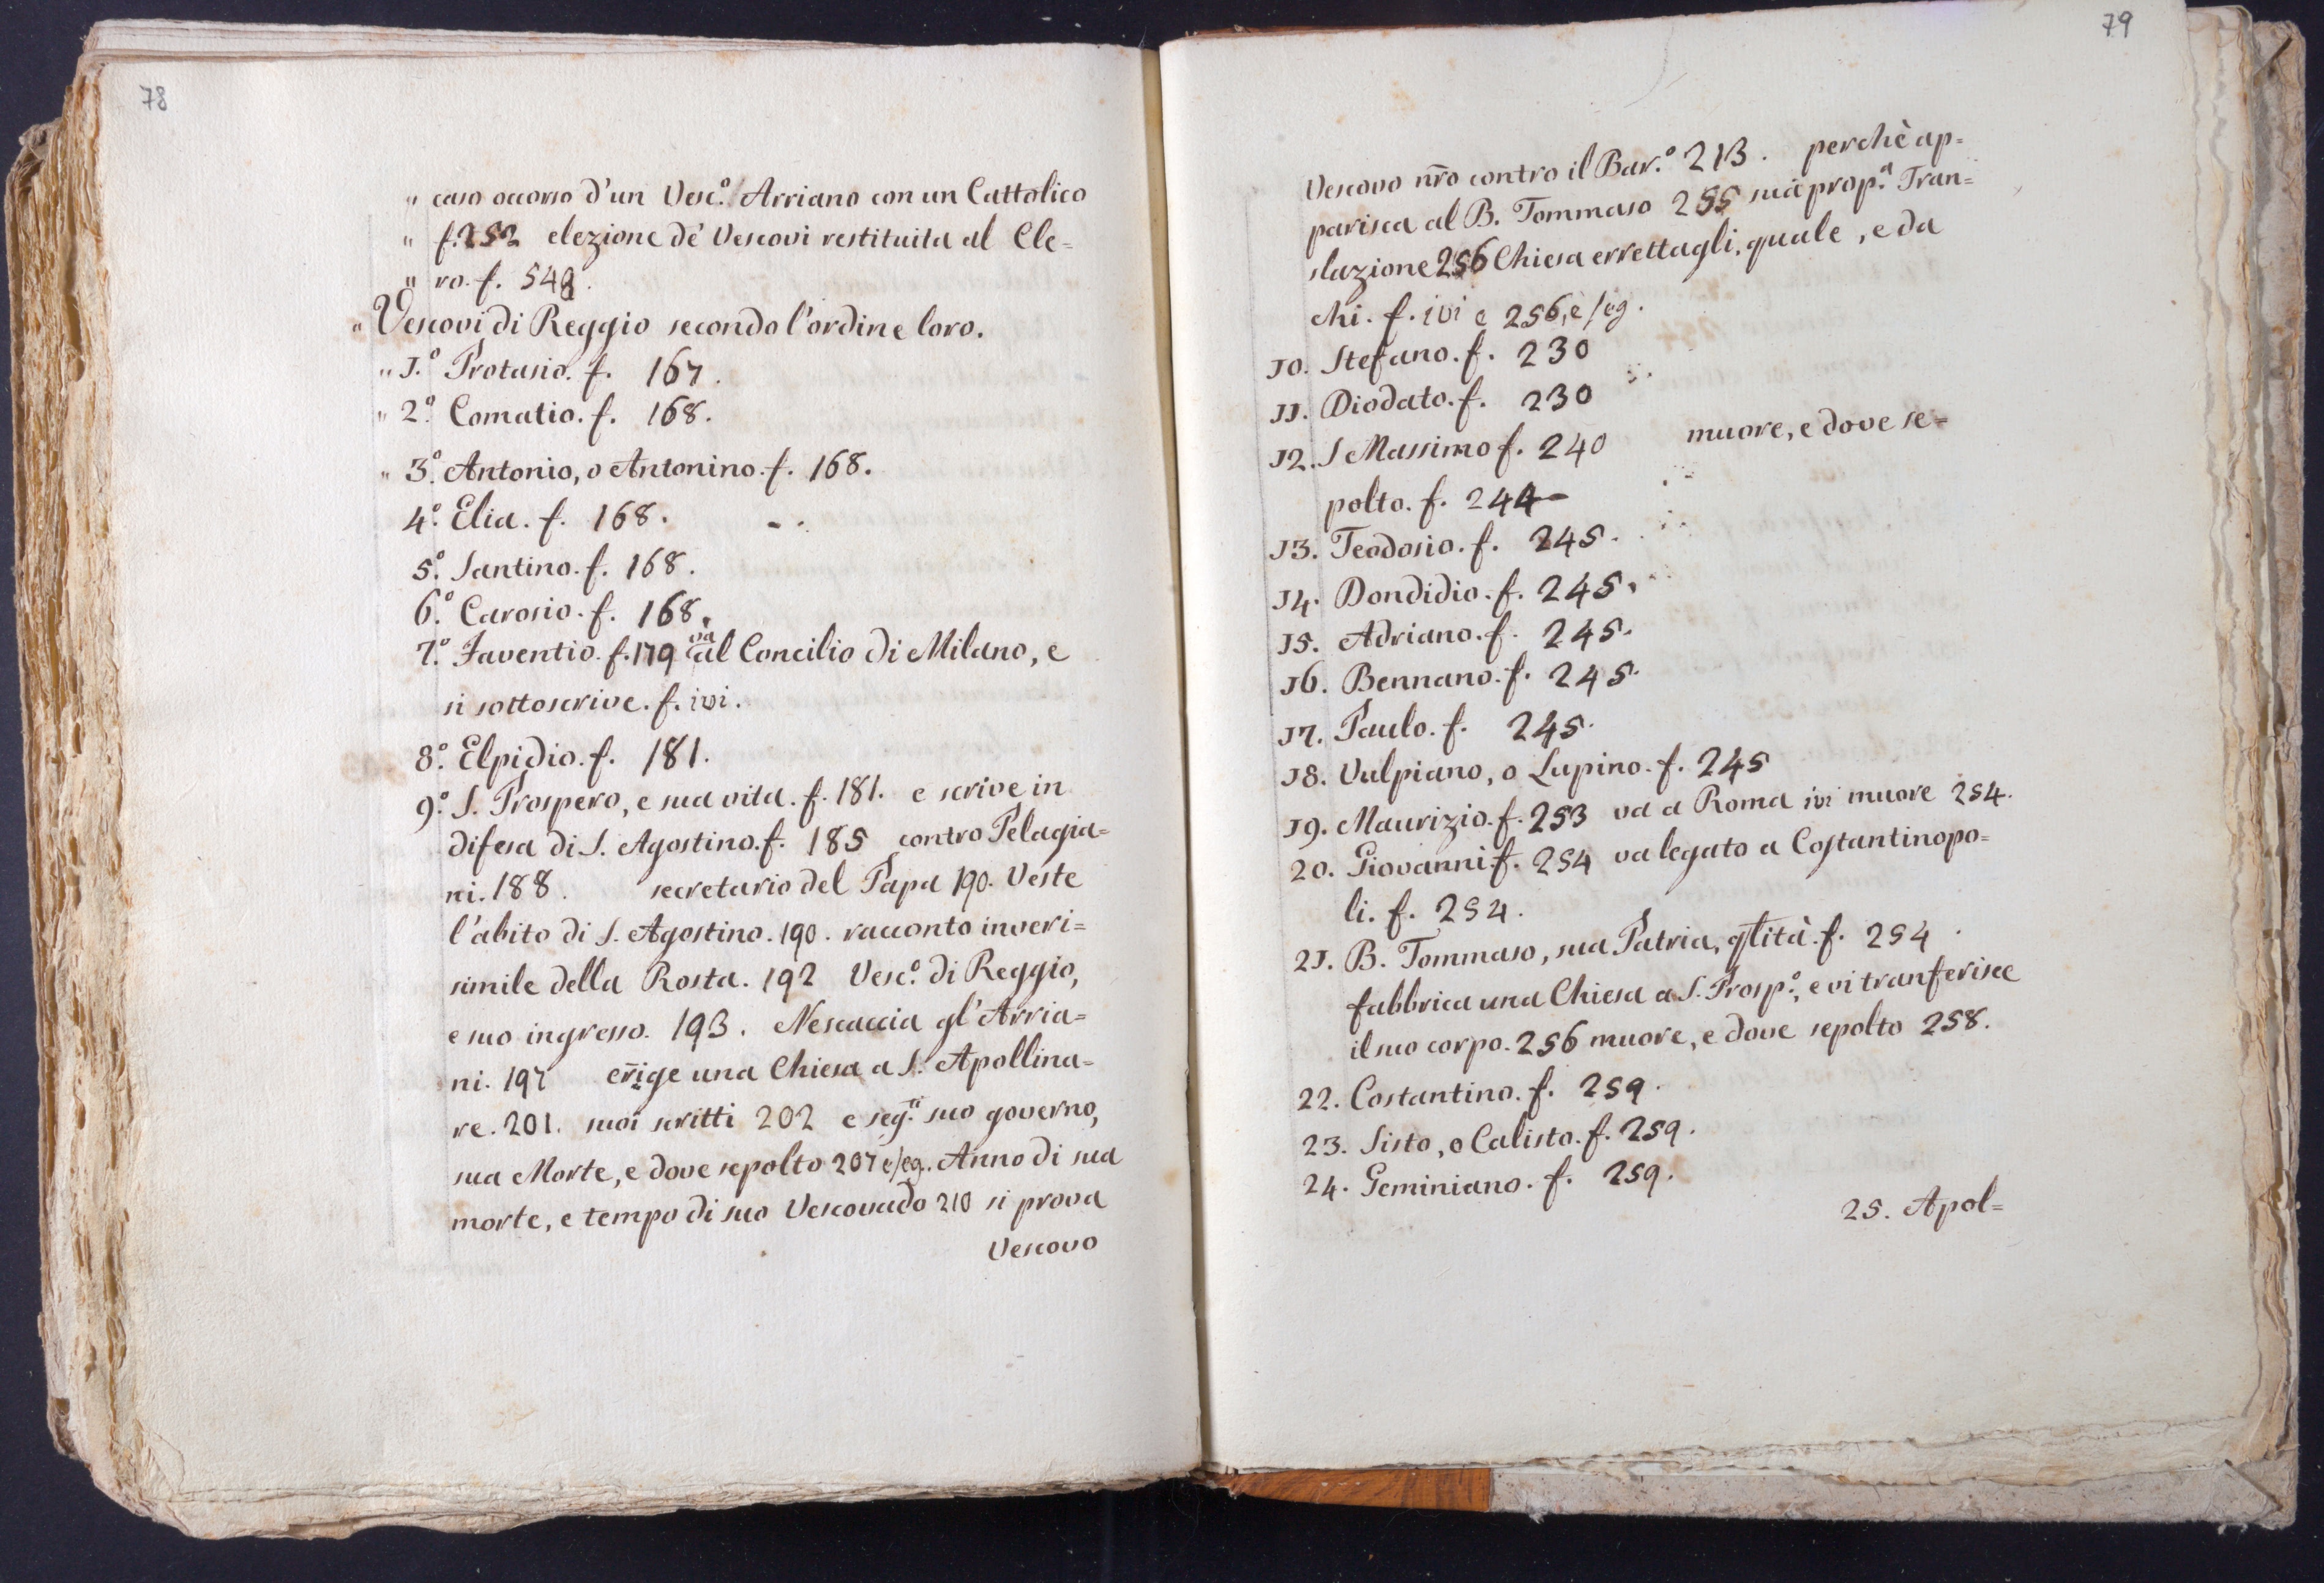 78
" caso occorso d'un Vesc.º Arriano con un Cattolico
" f. 252 elezione de' Vescovi restituita al Cle=
" ro. f. 548.
" Vescovi di Reggio secondo l'ordine loro.
" 1.º Protasio. f. 167.
" 2.º Comatio. f. 168.
" 3.º Antonio, o Antonino. f. 168.
4.º Elia. f. 168.
5.º Santino. f. 168.
6.º Carosio. f. 168.
7.º Faventio. f. 179 va al Concilio di Milano, e
si sottoscrive. f. ivi.
8.º Elpidio. f. 181.
9.º S. Prospero, e sua vita. f. 181. e scrive in
difesa di S. Agostino. f. 185 contro Pelagia=
ni. 188. secretario del Papa 190. Veste
l'abito di S. Agostino. 190. racconto inveri=
simile della Rosta. 192 Vesc.º di Reggio,
e suo ingresso. 193. Nescaccia gl'Arria=
ni. 197 errige una Chiesa a S. Apollina=
re. 201. suoi scritti 202 e seg.ti suo governo,
sua Morte, e dove sepolto 207 e seg. Anno di sua
morte, e tempo di suo Vescovado 210 si prova
Vescovo
79
Vescovo nr̃o contro il Bar.º 213. perchè ap=
parisca al B. Tommaso 255 sua prop.ª Tran=
slazione 256 Chiesa errettagli, quale, e da
chi. f. ivi e 256, e seg.
10. Stefano. f. 230
11. Diodato. f. 230
12. S Massimo f. 240 muore, e dove se=
polto. f. 244
13. Teodosio. f. 245.
14. Dondidio. f. 245.
15. Adriano. f. 245.
16. Bennano. f. 245.
17. Paulo. f. 245.
18. Vulpiano, o Lupino. f. 245
19. Maurizio. f. 253 va a Roma ivi muore 254.
20. Giovanni. f. 254 va legato a Costantinopo=
li. f. 254.
21. B. Tommaso, sua Patria, q̃lità. f. 254.
fabbrica una Chiesa a S. Prosp.º, e vi tranferisce
il suo corpo. 256 muore, e dove sepolto 258.
22. Costantino. f. 259.
23. Sisto, o Calisto. f. 259.
24. Geminiano. f. 259.
25. Apol=